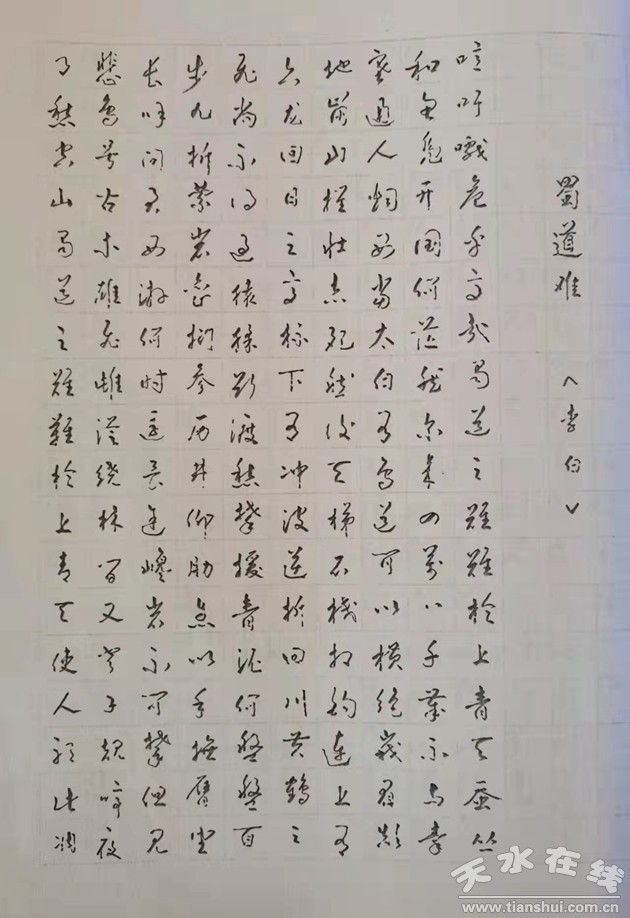 蜀道难 〈李白〉
噫吁嚱危乎高哉蜀道之難難於上青天蚕丛
和鱼凫开国何茫然尔来四万八千岁不与秦
塞通人烟西当太白有鸟道可以横绝峨眉巅
地崩山摧壮士死然后天梯石栈相钩连上有
六龙回日之高标下有冲波逆折回川黄鹤之
飞尚不得过猿猱欲渡愁攀援青泥何盘盘百
步九折萦岩峦扪参历井仰胁息以手抚膺坐
长呼问君西游何时还畏途巉岩不可攀但见
悲鸟号古木雄飞雌从绕林间又闻子规啼夜
月愁空山蜀道之難難於上青天使人听此凋
天水在线
www.tianshui.com.cn